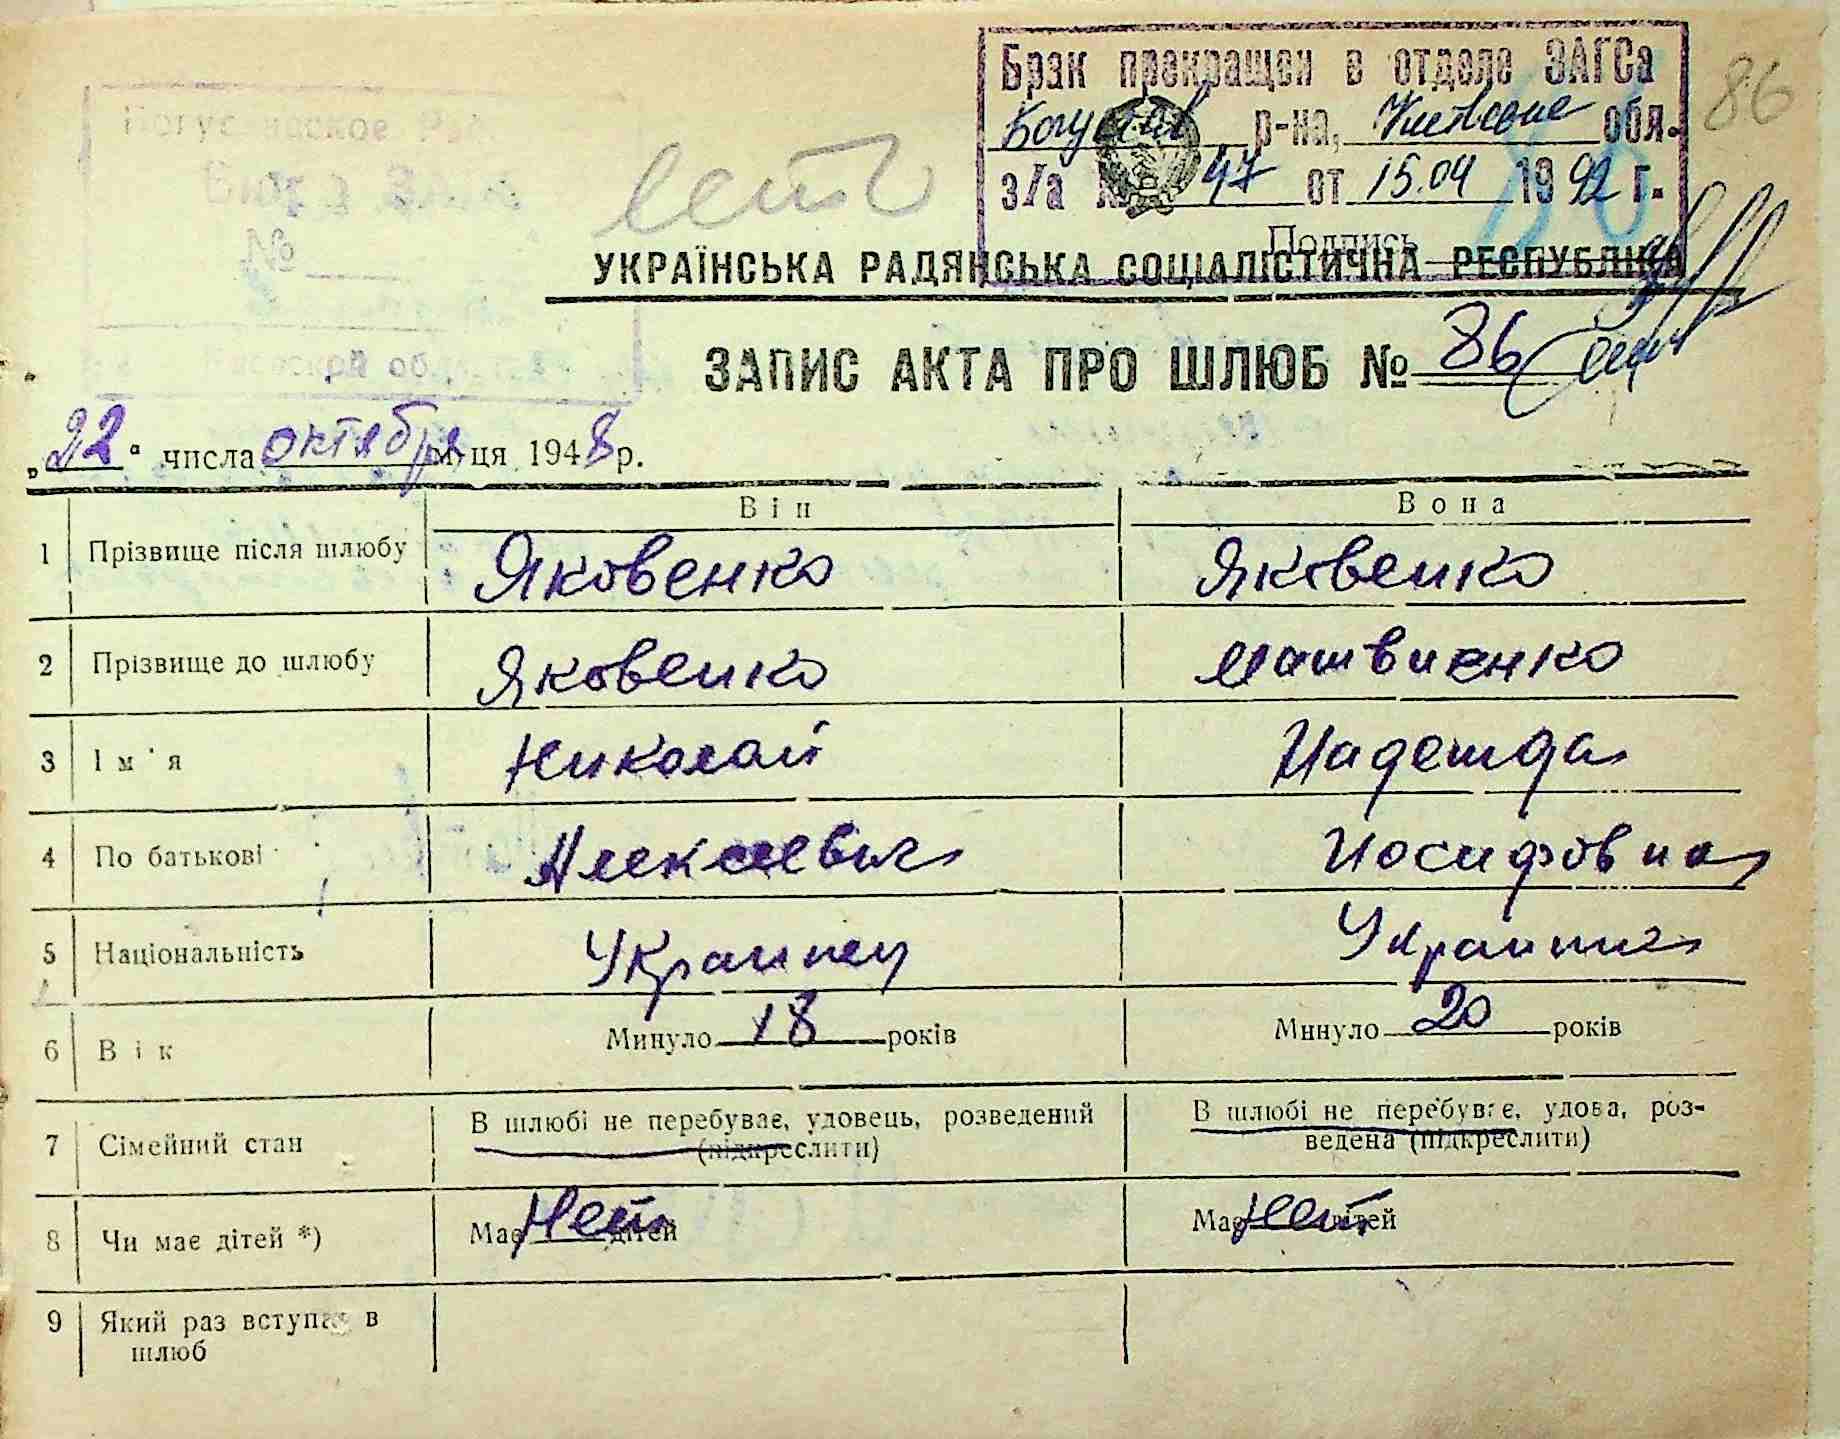 Брак прекращен в отделе ЗАГСа
Богуслав р-на, Киевские обл.
з/а № 47 от 15.04 1992 г.
Подпись
86
Бюро
№
УКРАЇНСЬКА РАДЯНСЬКА СОЦІАЛІСТИЧНА РЕСПУБЛІКА
ЗАПИС АКТА ПРО ШЛЮБ № 86
„22“ числа октября м-ця 1948 р.
Він Вона
1 Прізвище після шлюбу Яковенко Яковенко
2 Прізвище до шлюбу Яковенко Матвиенко
3 Ім'я Николай Надежда
4 По батькові Алексеевич Иосифовна
5 Національність Украинец Украинка
6 Вік Минуло 18 років Минуло 20 років
7 Сімейний стан В шлюбі не перебуває, удовець, розведений В шлюбі не перебуває, удова, роз-
(підкреслити) ведена (підкреслити)
8 Чи має дітей *) Має Нет дітей Має Нет дітей
9 Який раз вступає в
шлюб